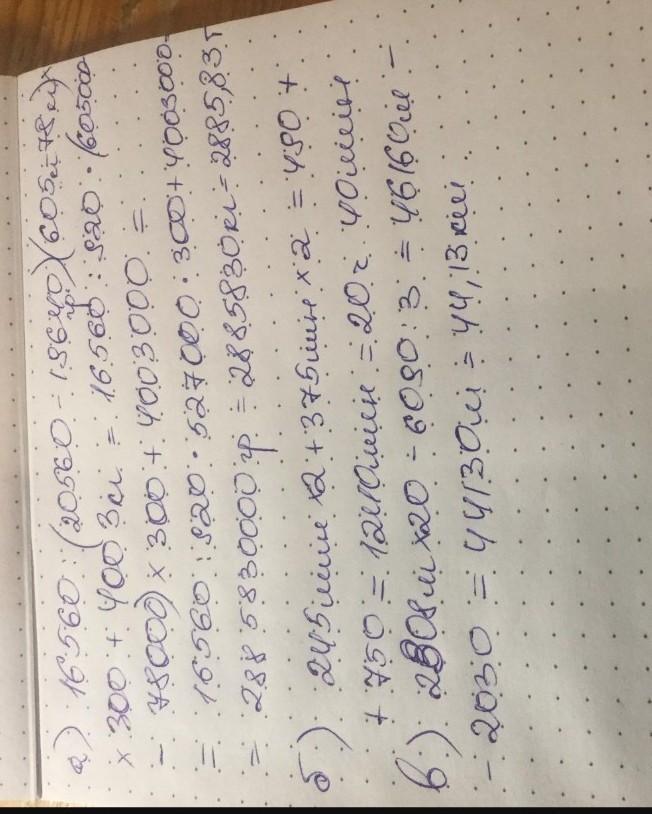 а) 16560 : (20560 - 19640)(605кг-78кг)×
гр
× 300 + 4003кг = 16560 : 920 · (605000-
- 78000) × 300 + 4003000 =
= 16560 : 920 · 527000 · 300 + 4003000=
= 2885830000гр = 2885830кг = 2885,83т
б) 245мин ×2 + 375мин × 2 = 490 +
+ 750 = 1240мин = 20ч 40мин
в) 2308м ×20 - 6090 : 3 = 46160м -
- 2030 = 44130м = 44,13км